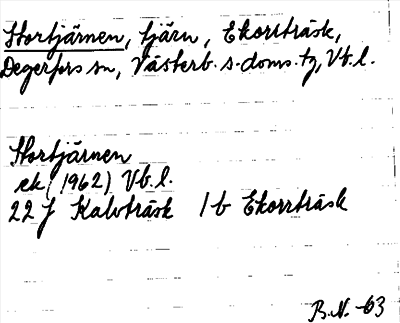 Stortjärnen, tjärn, Ekorrträsk,
Degerfors sn, Västerb. s. doms. tg, Vb. l.
Stortjärnen
ek (1962) Vb. l.
22 J Kalvträsk 1 b Ekorrträsk
B.N. -63